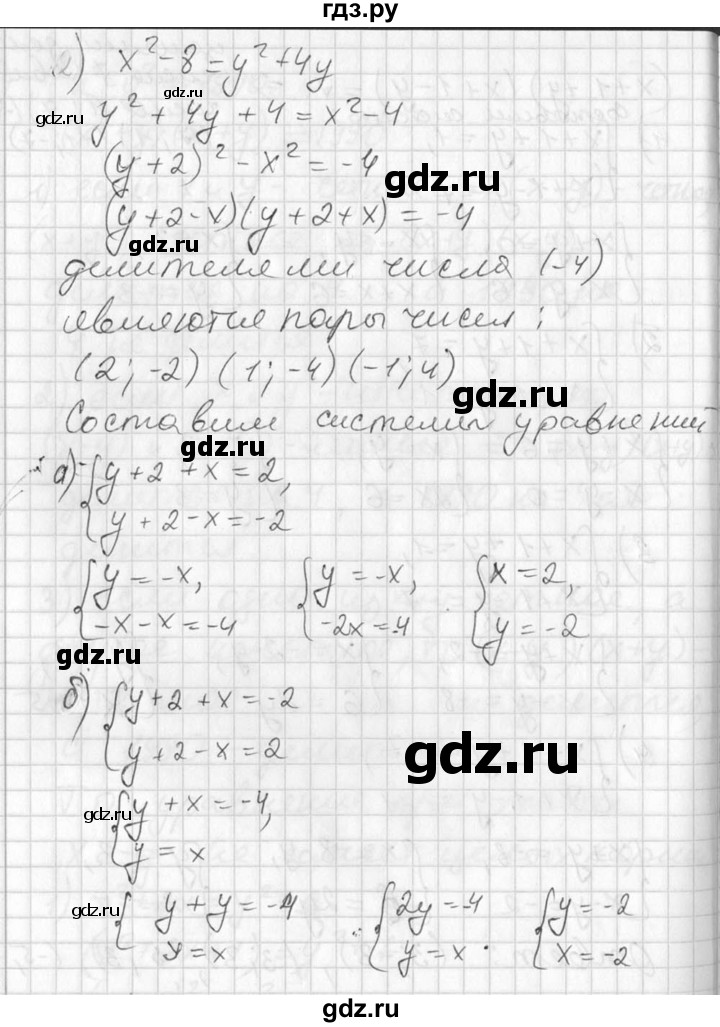 гдз.ру
2) x² - 8 = y² + 4y
gdz.ru
gdz.ru y² + 4y + 4 = x² - 4
(y + 2)² - x² = -4
gdz.ru
(y + 2 - x)(y + 2 + x) = -4
gdz.ru
делителями числа (-4)
являются пары чисел:
(2; -2) (1; -4) (-1; 4)
gdz.ru
Составим системы уравнений
gdz.ru
а) { y + 2 + x = 2,
y + 2 - x = -2
{ y = -x, { y = -x, { x = 2,
-x - x = -4 -2x = -4 y = -2
gdz.ru
б) { y + 2 + x = -2
y + 2 - x = 2
gdz.ru
gdz.ru { y + x = -4,
y = x
gdz.ru { y + y = -4 { 2y = -4 { y = -2
y = x y = x x = -2
gdz.ru